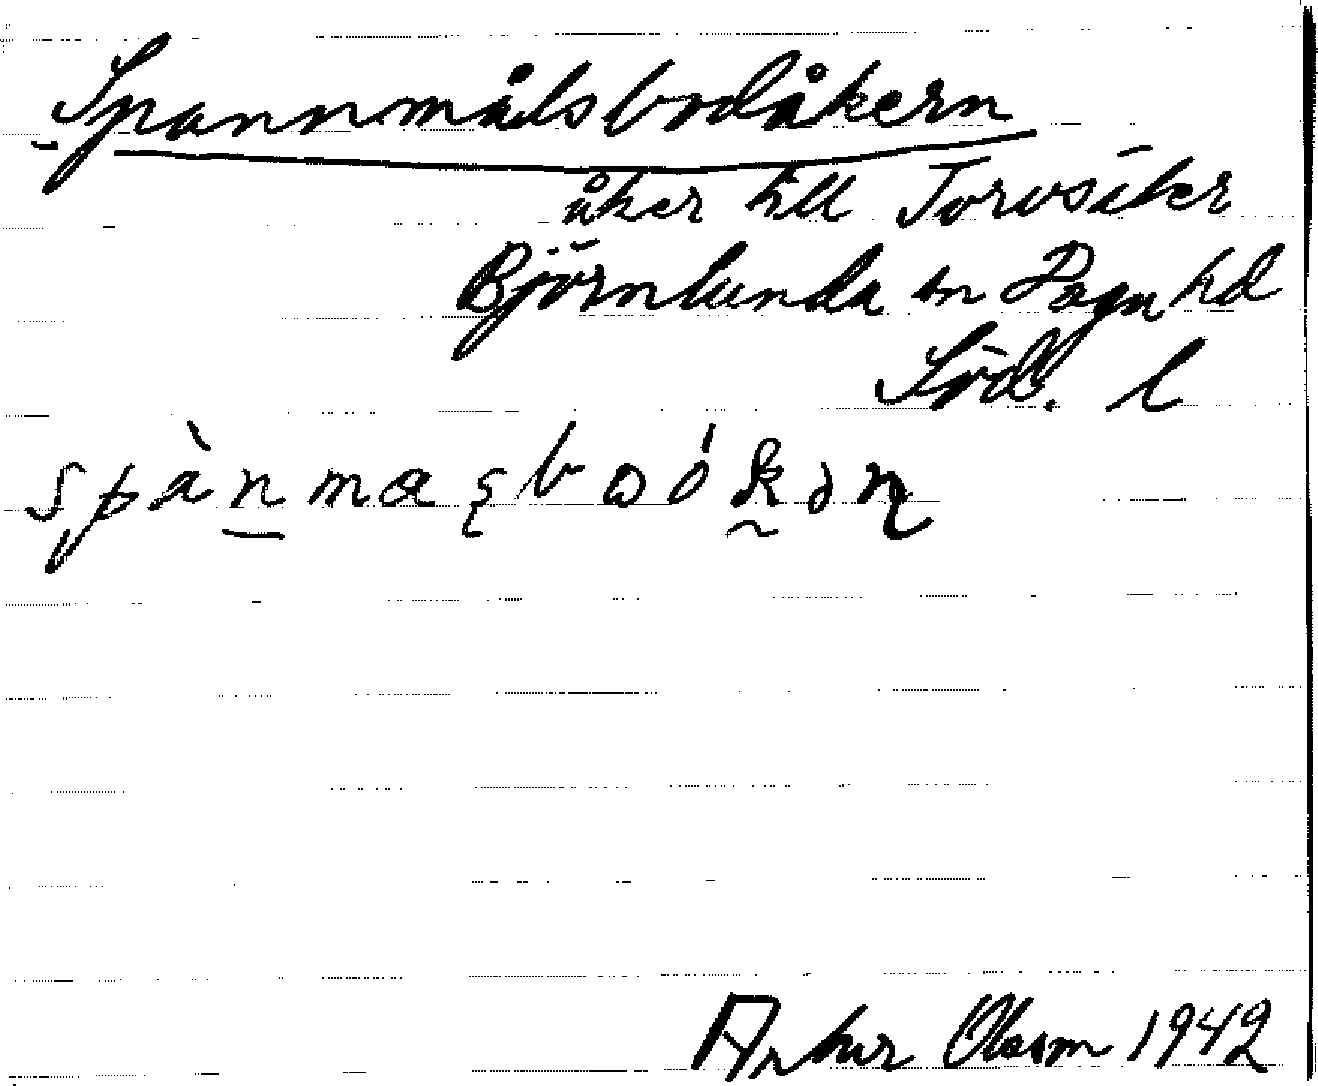 Spannmålsbodåkern
åker till Torvsäker
Björnlunda sn Daga hd
Söd. l
spànmasboókən
Arthur Olsson 1942